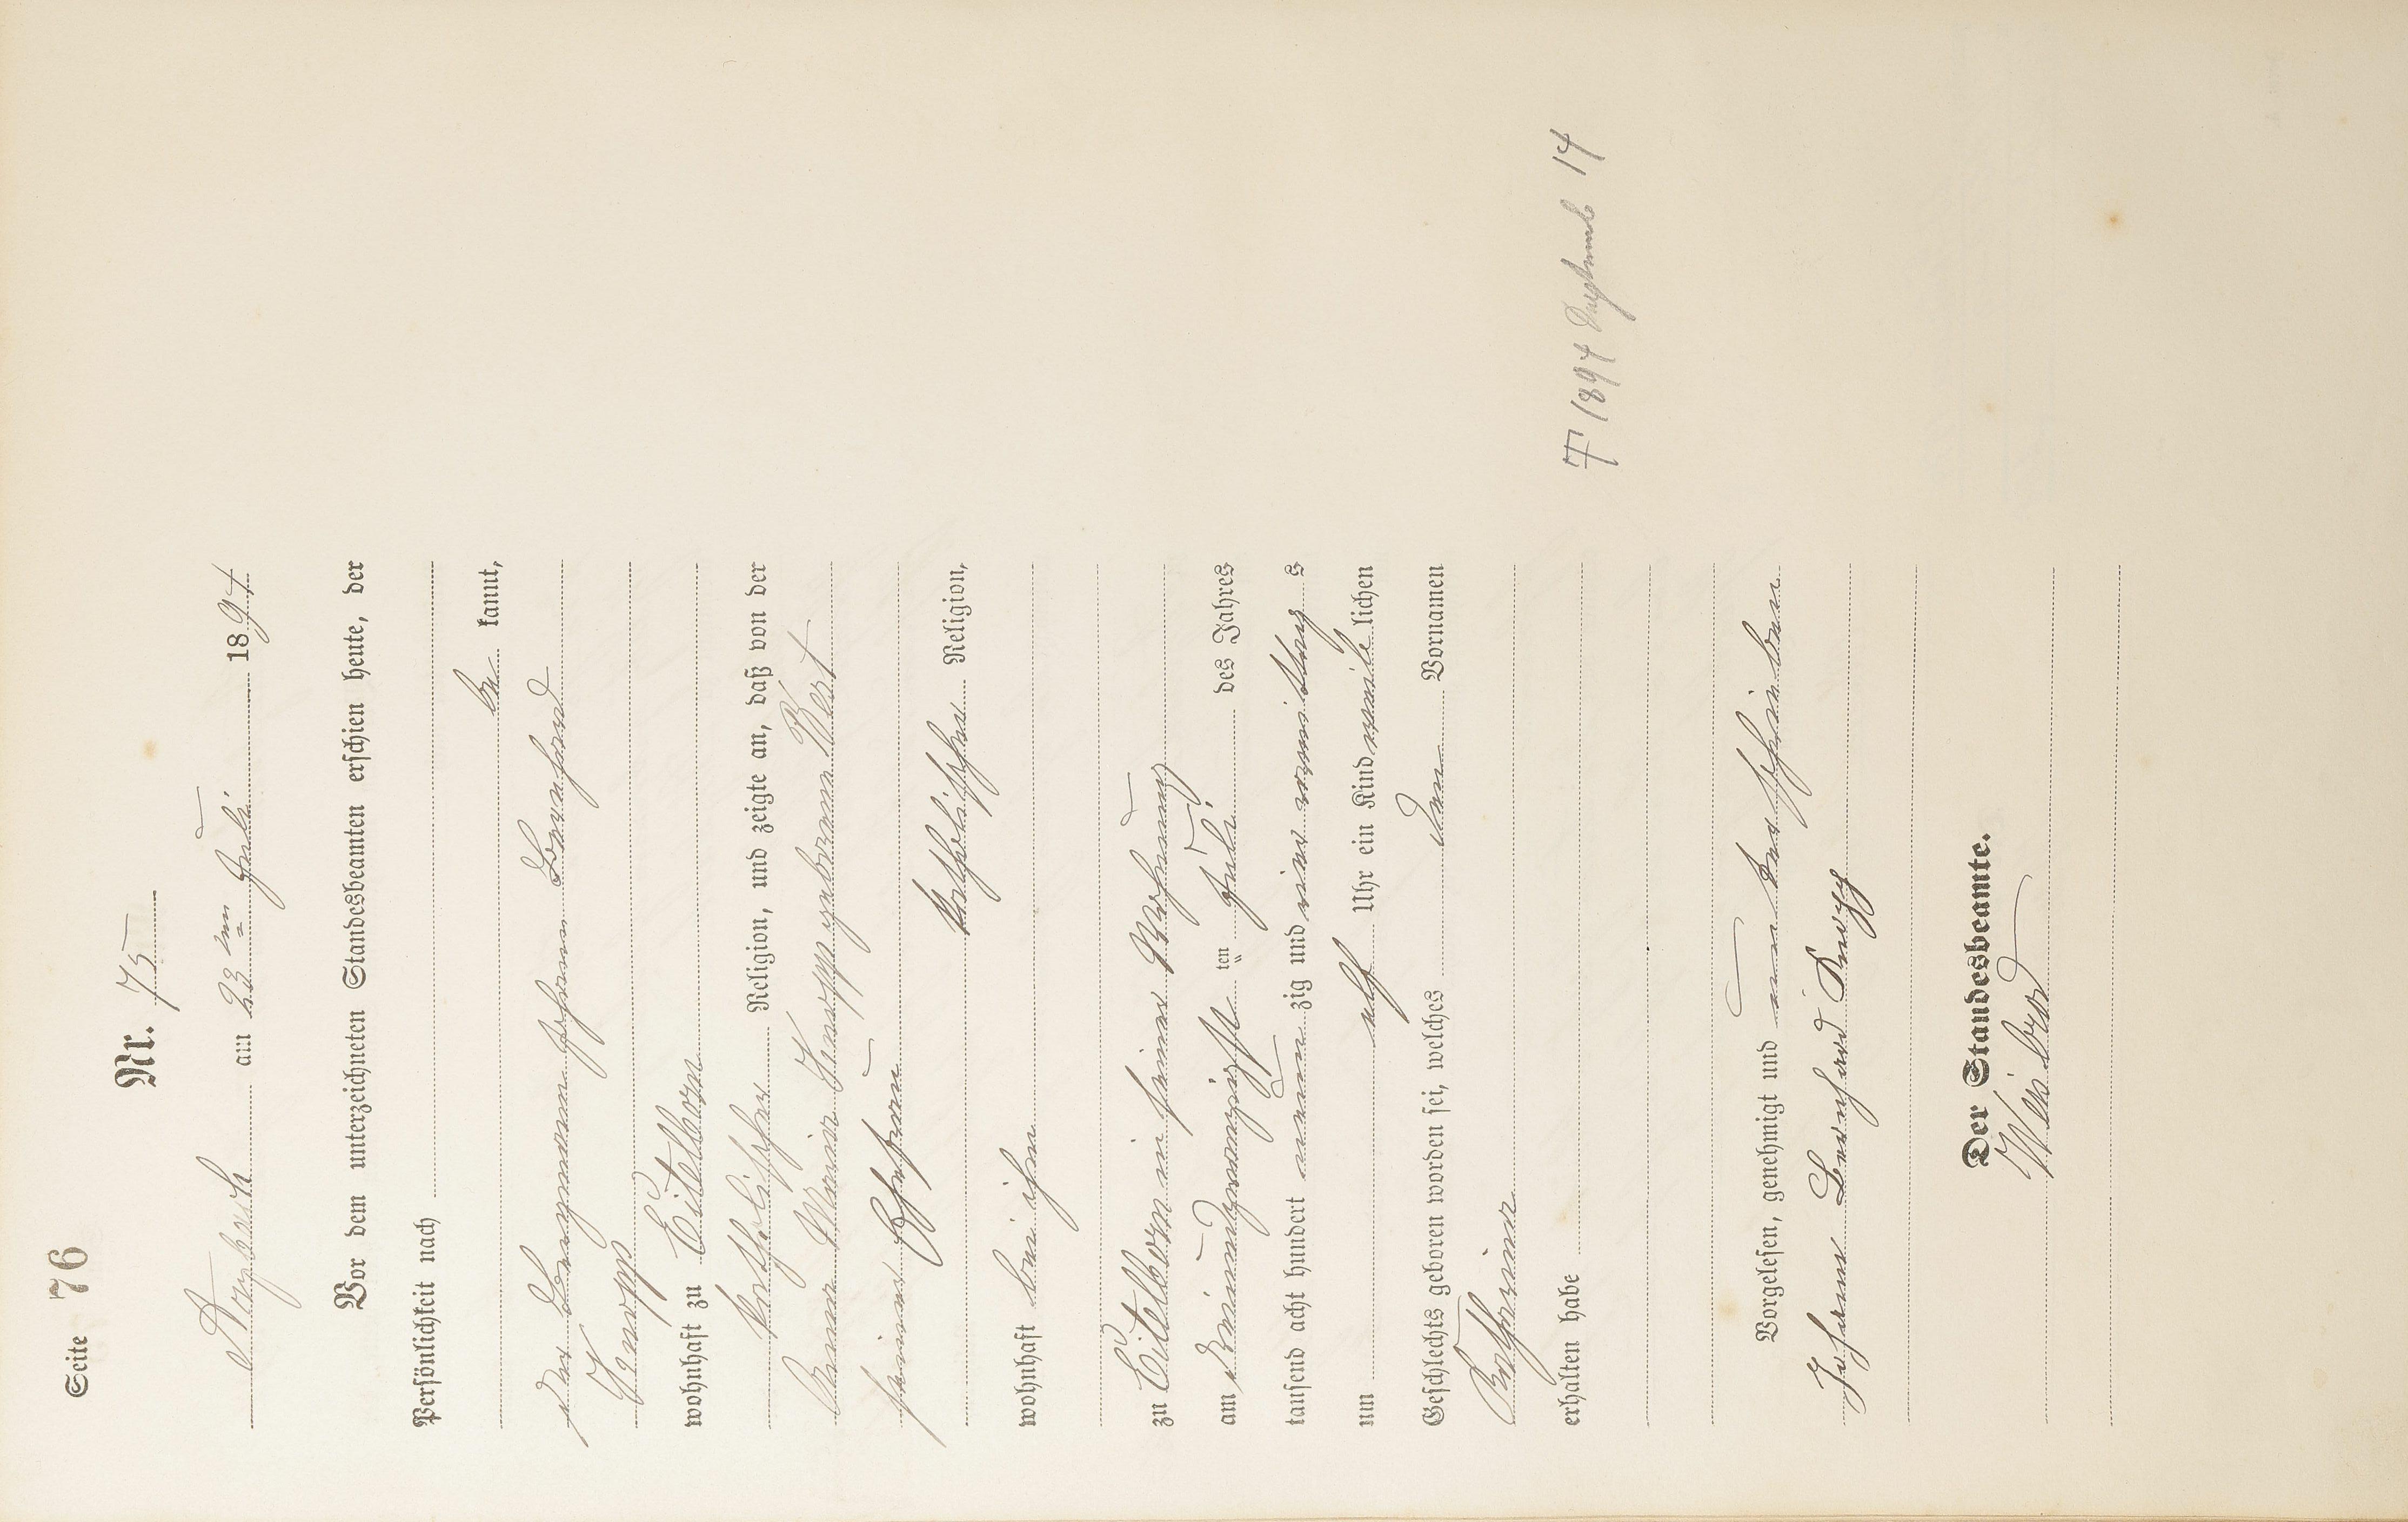 Seite 76
Nr. 75
Arzbach am 23ten Juli 1894
Vor dem unterzeichneten Standesbeamten erschien heute, der
Persönlichkeit nach
be kannt,
der Bergmann Johann Bernhard
Knopp
wohnhaft zu Eitelborn
katholischer Religion, und zeigte an, daß von der
Anna Maria Knopp geborenen
seiner Ehefrau
katholischer Religion,
wohnhaft bei ihm
zu Eitelborn in seiner Wohnung
am einundzwanzigsten Juli des Jahres
tausend acht hundert neun zig und vier vormittags
um elf Uhr ein Kind weiblichen
Geschlechts geboren worden sei, welches den Vornamen
Katharina
erhalten habe
Vorgelesen, genehmigt und unterschrieben
Johann Bernhard Knopp
Der Standesbeamte.
† 1894 September 14